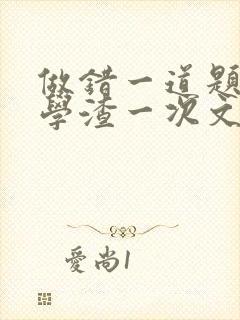 做錯一道題
學渣一次文
愛尚1